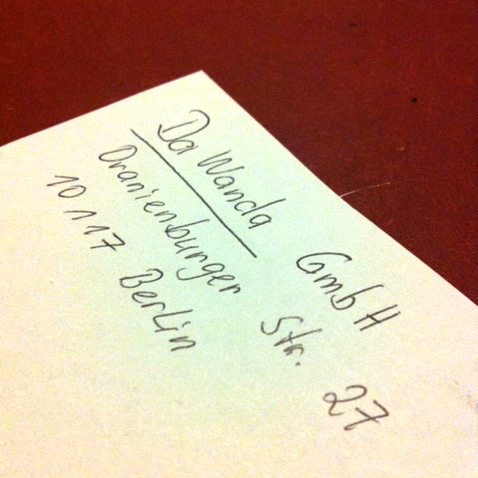 Da Wanda GmbH
Oranienburger Str. 27
10117 Berlin